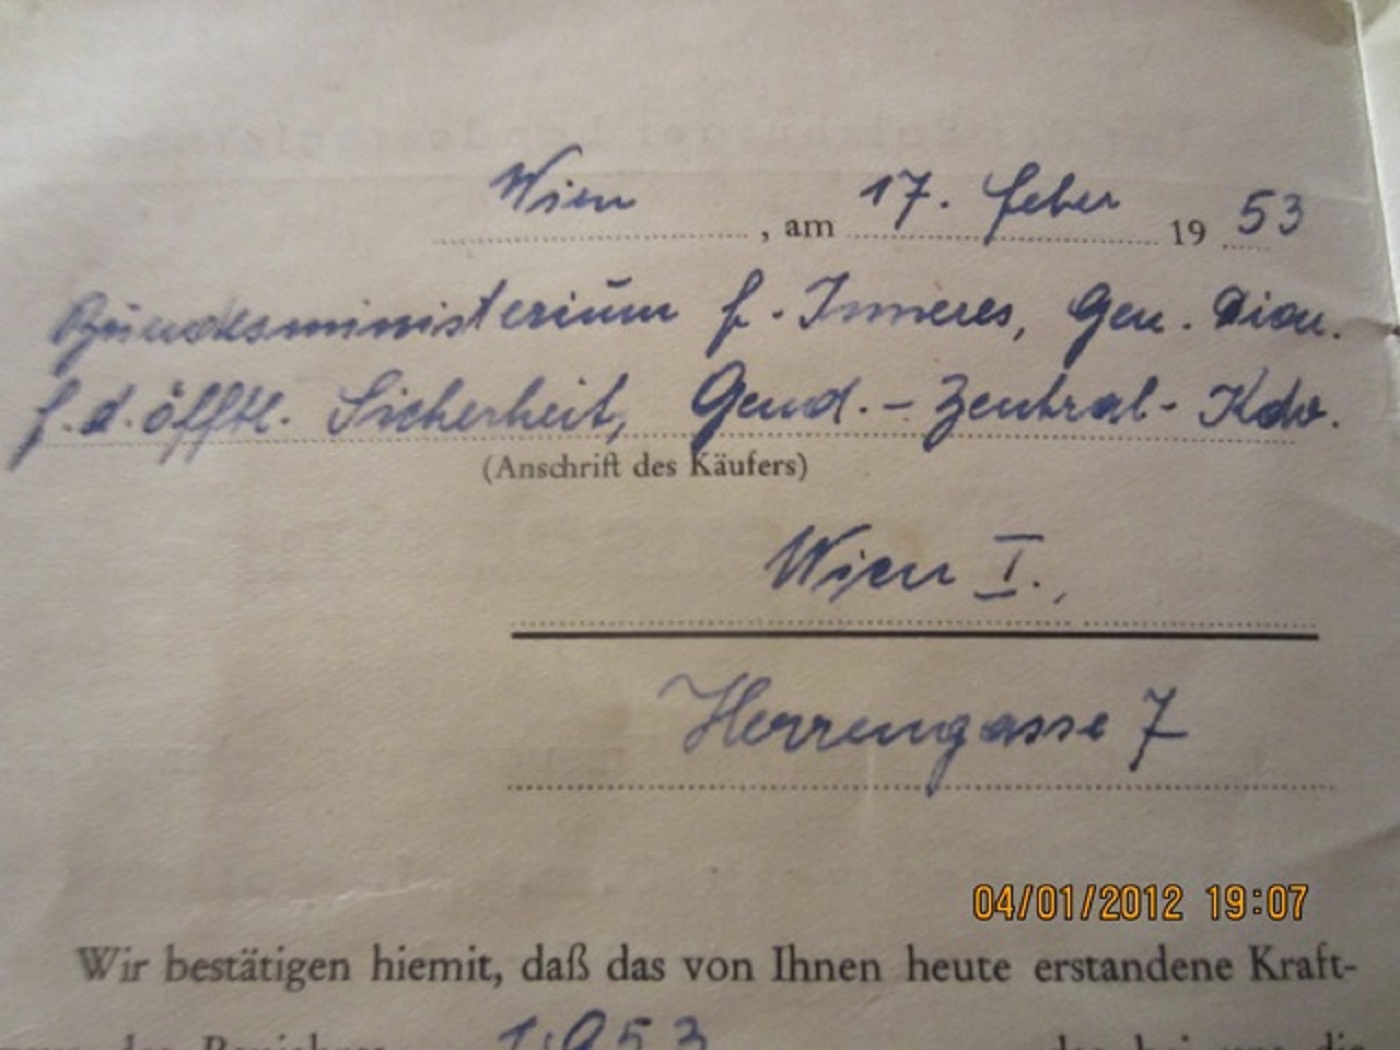 Wien, am 17. feber 1953
Bundesministerium f. Inneres, Gen. Dion.
f. d. öfftl. Sicherheit, Gend. - Zentral- Kdo.
(Anschrift des Käufers)
Wien I.,
Herrengasse 7
04/01/2012 19:07
Wir bestätigen hiemit, daß das von Ihnen heute erstandene Kraft-
1953